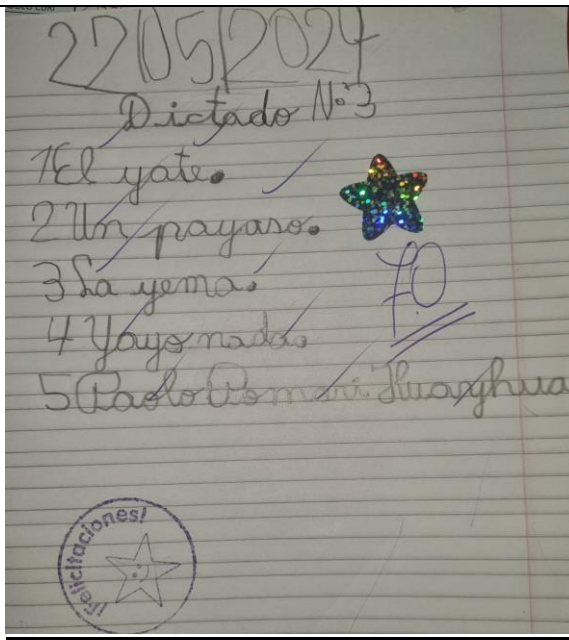 22/05/2024
Dictado N:3
1 El yate.
2 Un payaso.
3 La yema.
7.0
4 Yayo nada.
5 Paolo Pomari
¡Felicitaciones!